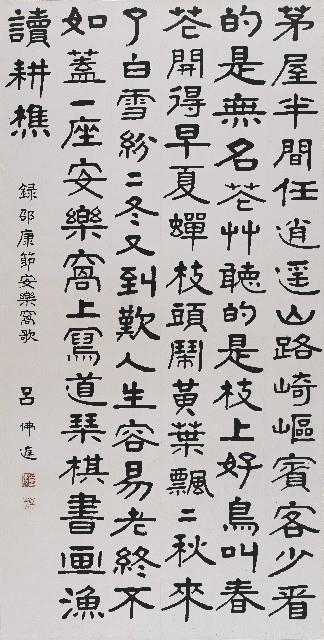 茅屋半間任逍遥山路崎嶇賓客少看
的是無名花艸聽的是枝上好鳥叫春
花開得早夏蟬枝頭鬧黃葉飄〻秋來
了白雪紛〻冬又到歎人生容易老終不
如蓋一座安樂窩上寫道琴棋書画漁
讀耕樵
録邵康節安樂窩歌 呂佛庭